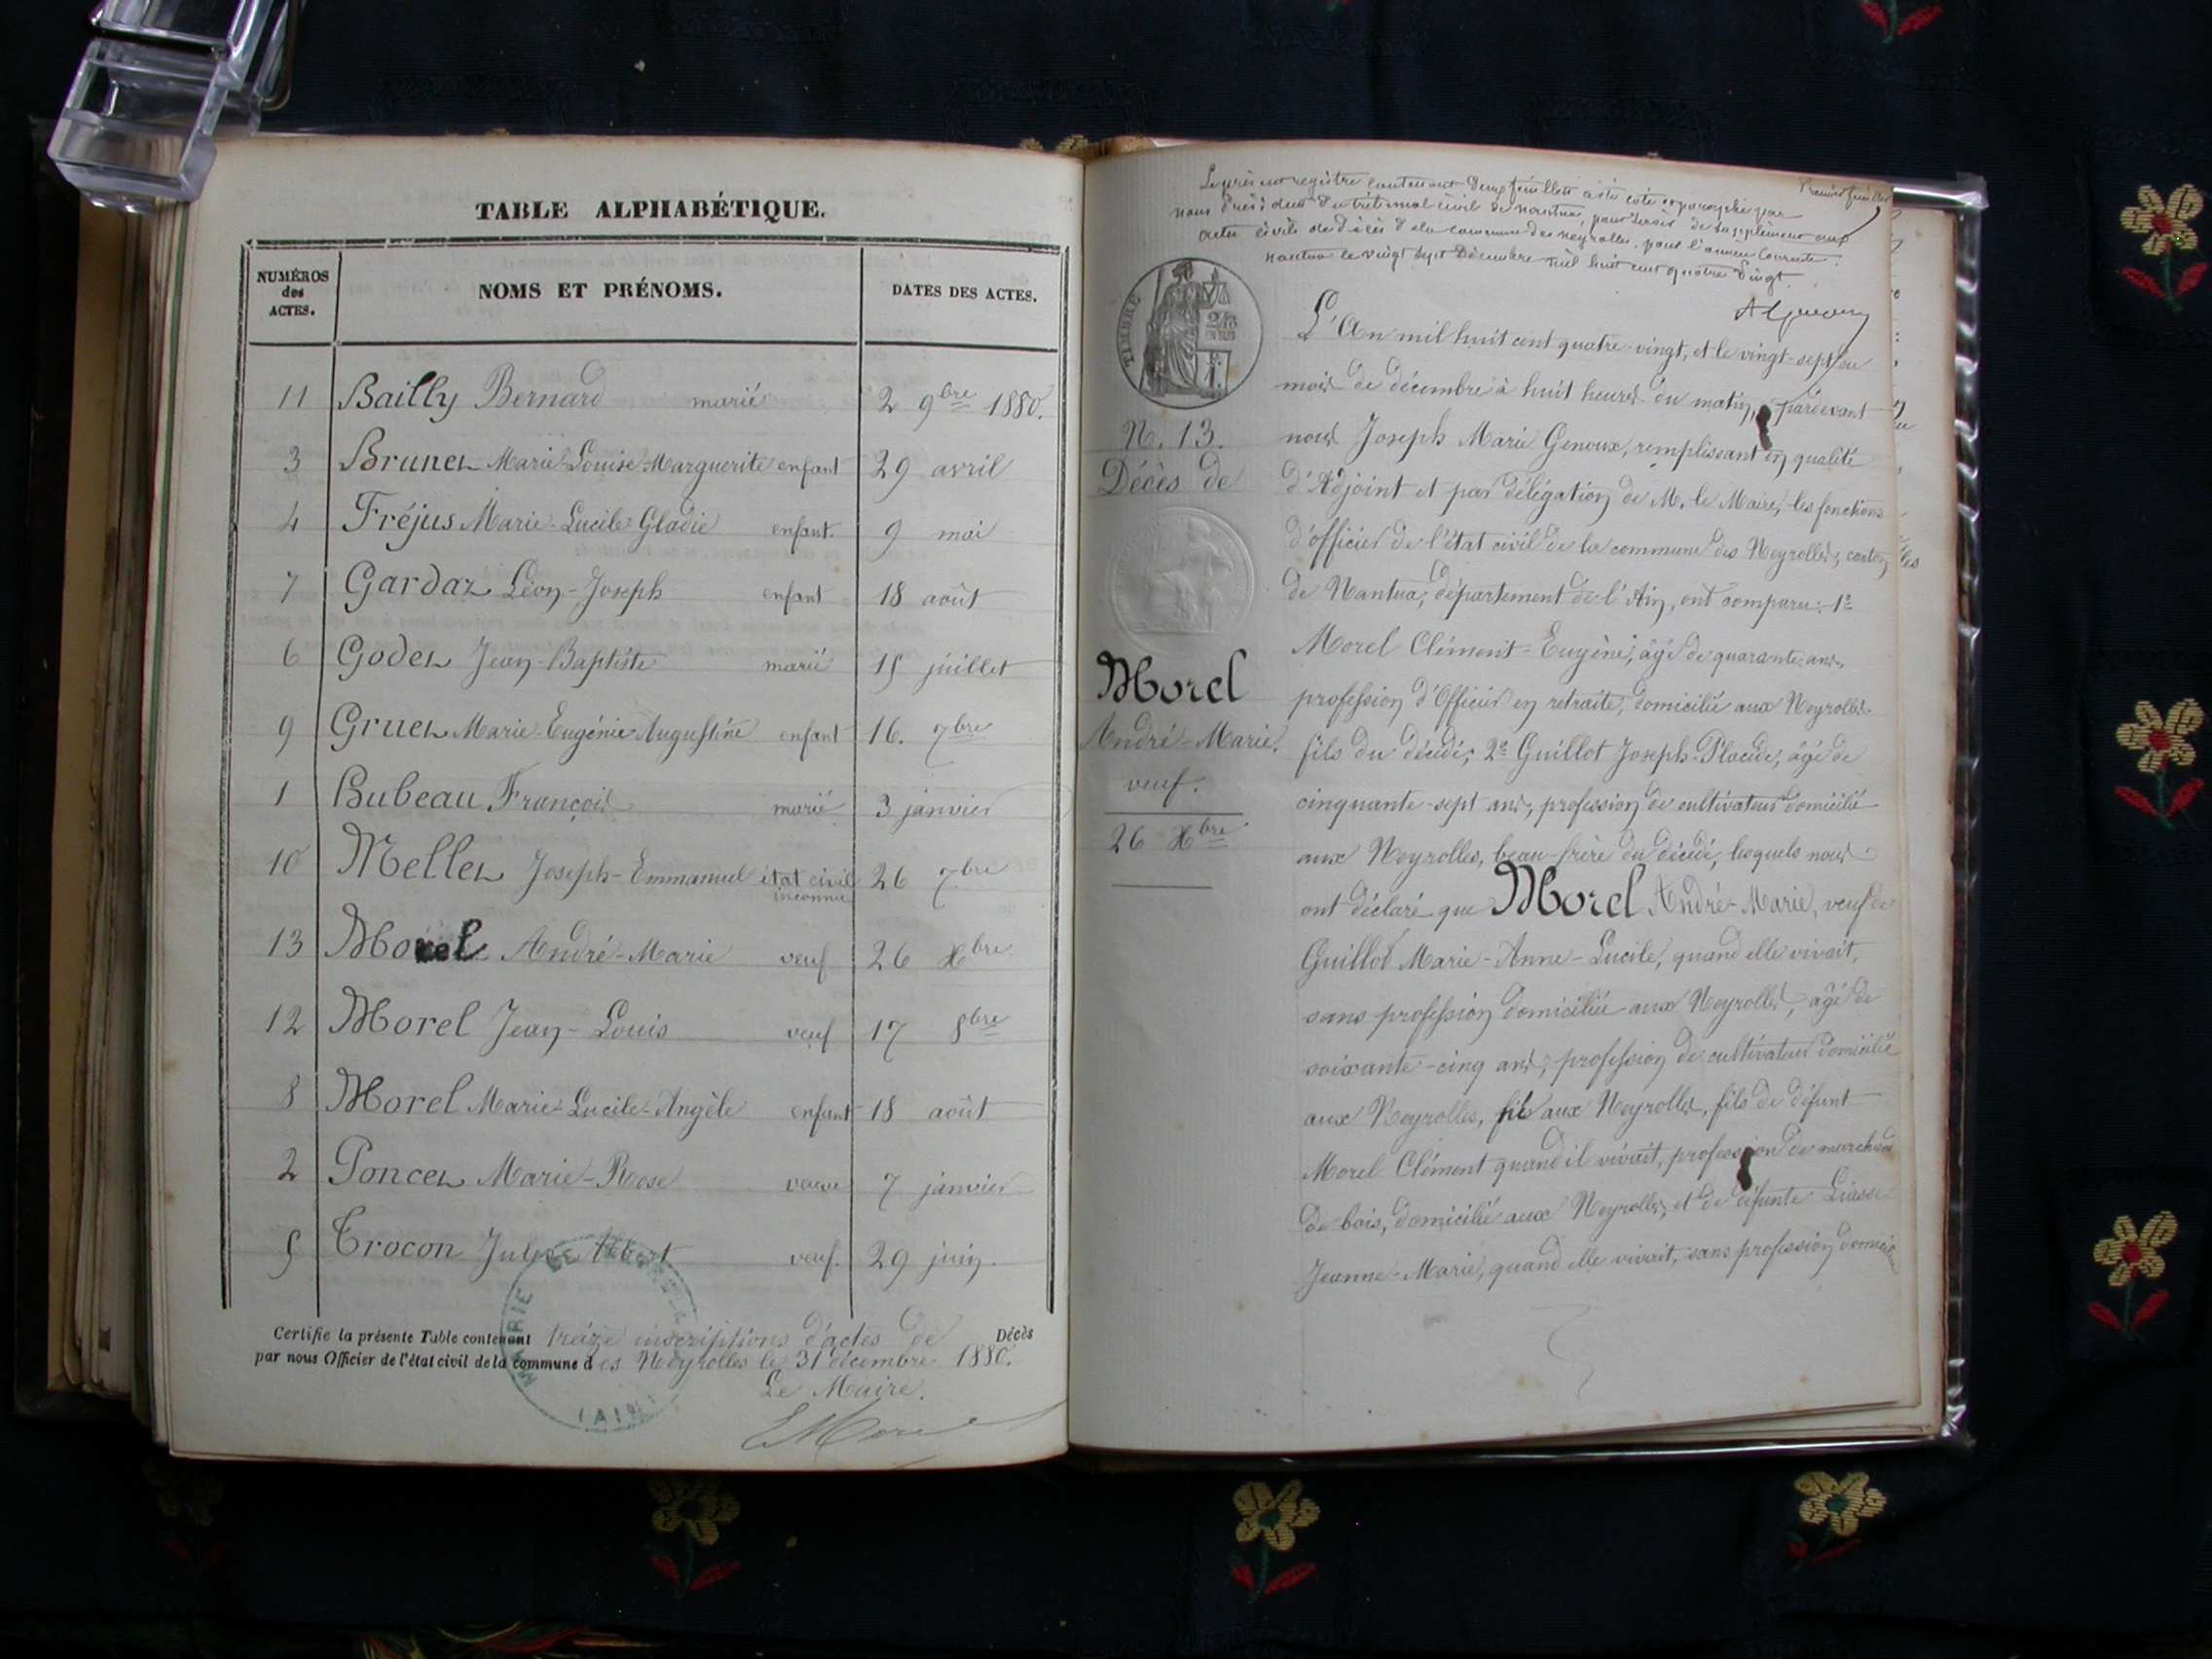 TABLE ALPHABÉTIQUE.
NUMÉROS des ACTES. NOMS ET PRÉNOMS. DATES DES ACTES.
11 Bailly Bernard marié 2 9bre 1880.
3 Brunet Marie-Louise-Marguerite enfant 29 avril
4 Fréjus Marie-Lucile Gladie enfant. 9 mai
7 Gardaz Léon-Joseph enfant 18 août
6 Godet Jean-Baptiste marié 15 juillet
9 Gruet Marie-Eugénie Augustine enfant 16. 7bre
1 Hubeau François marié 3 janvier
10 Mellet Joseph-Emmanuel état civil inconnu 26 7bre
13 Morel André-Marie veuf 26 Xbre
12 Morel Jean-Louis veuf 17 8bre
8 Morel Marie-Lucile-Angèle enfant 18 août
2 Poncet Marie-Rose veuve 7 janvier
5 Trocon Jules Albert veuf. 29 juin.
Certifie la présente Table contenant treize inscriptions d'actes de Décès
par nous Officier de l'état civil de la commune des Neyrolles le 31 décembre 1880.
Le Maire.
E Morel
MAIRIE DE
(AIN)
Premier feuillet
Le présent registre contenant deux feuillets a été coté et paraphé par
nous Président du tribunal civil de Nantua, pour servir de supplément aux
actes civils de décès de la commune des Neyrolles, pour l'année courante.
Nantua le vingt sept Décembre mil huit cent quatre vingt.
TIMBRE
N. 13.
Décès de
Morel
André-Marie.
veuf.
26 Xbre
L'An mil huit cent quatre-vingt, et le vingt-sept du
mois de décembre à huit heures du matin, pardevant
nous Joseph Marie Genoux, remplissant en qualité
d'Adjoint et par délégation de M. le Maire, les fonctions
d'officier de l'état civil de la commune des Neyrolles, canton
de Nantua, département de l'Ain, ont comparu: 1º
Morel Clément-Eugène, âgé de quarante ans,
profession d'Officier en retraite, domicilié aux Neyrolles
fils du décédé; 2º Guillot Joseph-Placide, âgé de
cinquante-sept ans, profession de cultivateur domicilié
aux Neyrolles, beau-frère du décédé, lesquels nous
ont déclaré que Morel André-Marie, veuf de
Guillot Marie-Anne-Lucile, quand elle vivait,
sans profession domiciliée aux Neyrolles, âgé de
soixante-cinq ans, profession de cultivateur domicilié
aux Neyrolles, fils aux Neyrolles, fils de défunt
Morel Clément quand il vivait, profession de marchand
de bois, domicilié aux Neyrolles, et de défunte Liasse
Jeanne-Marie, quand elle vivait, sans profession domicil